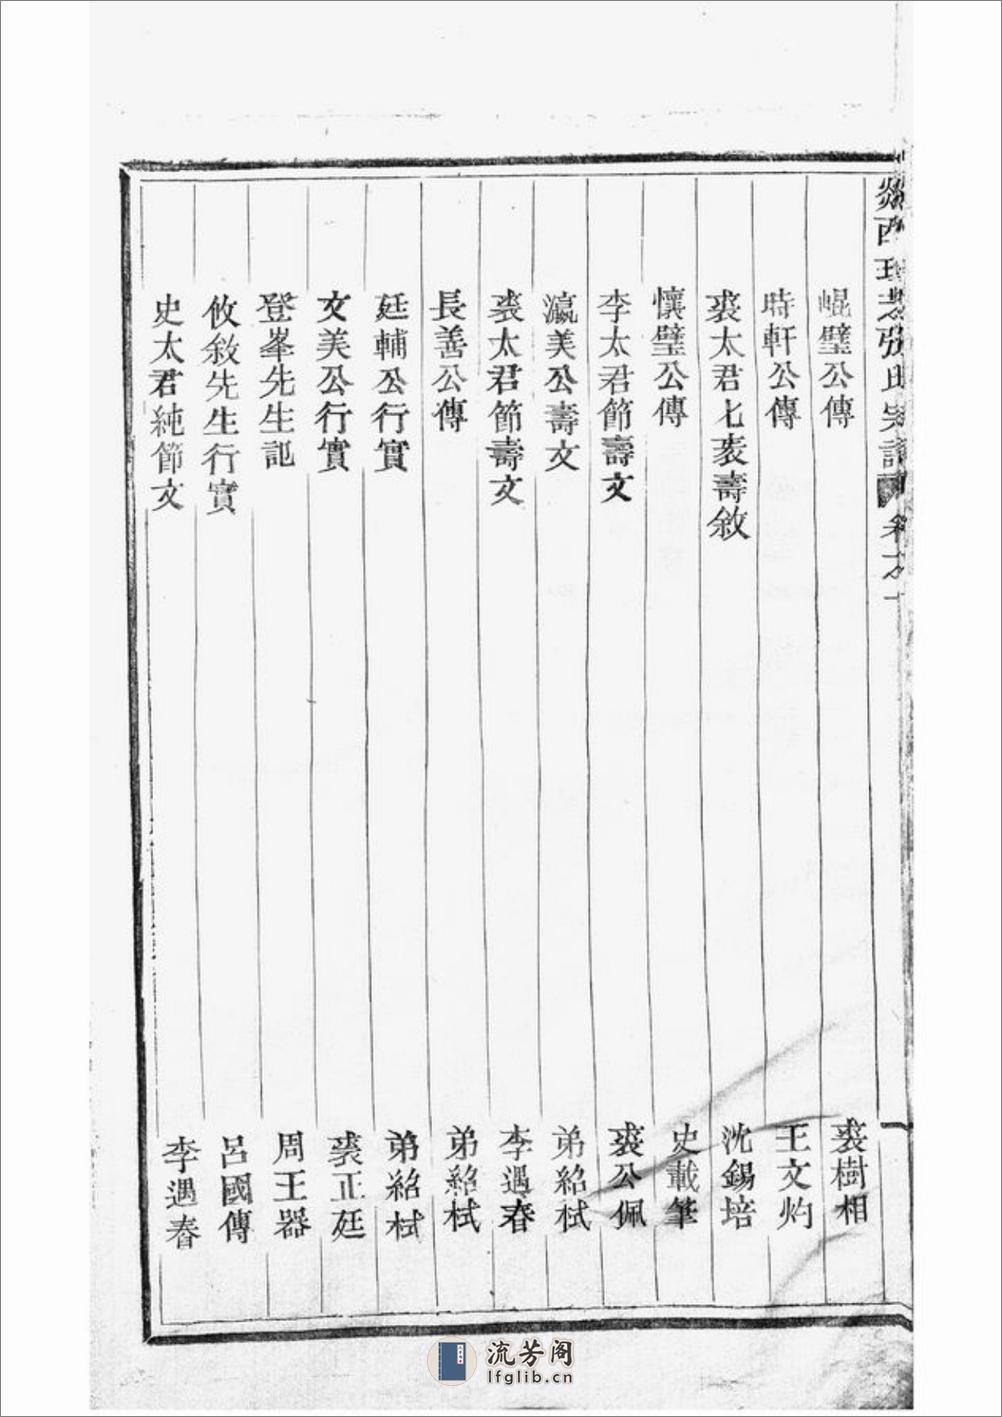 崐璧公傳 裘樹相
時軒公傳 王文灼
裘太君七袠壽敘 沈錫培
懷璧公傳 史載筆
李太君節壽文 裘公佩
瀛美公壽文 弟紹栻
裘太君節壽文 李遇春
長善公傳 弟紹栻
廷輔公行實 弟紹栻
文美公行實 裘正廷
登峯先生記 周王器
攸敘先生行實 呂國傳
史太君純節文 李遇春
流芳阁
lfglib.cn